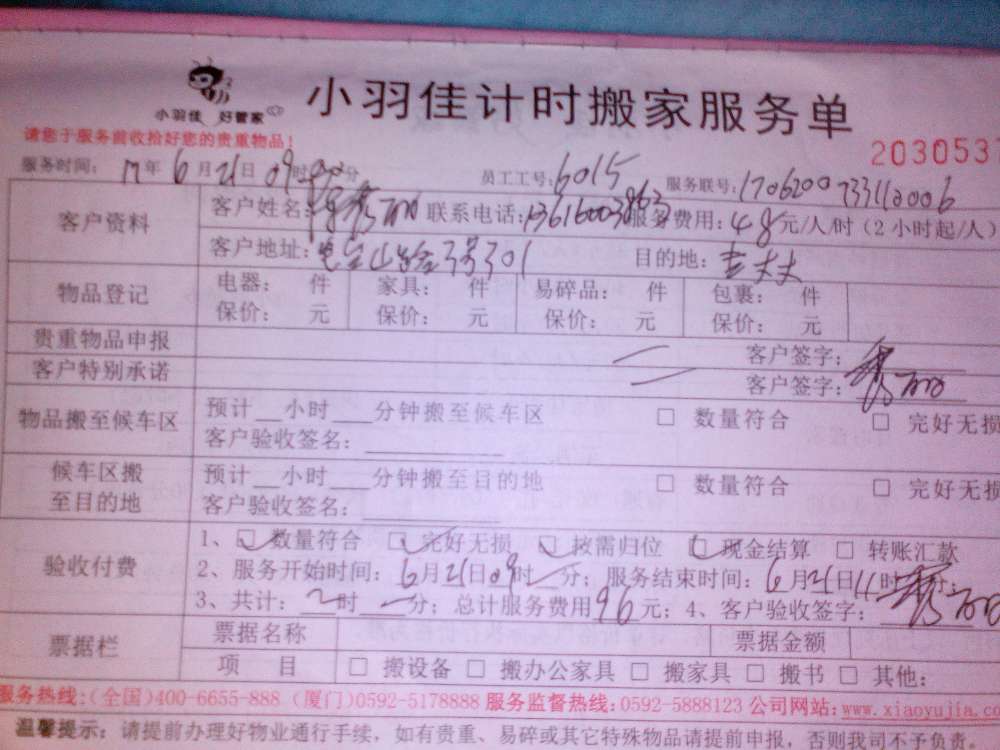 小羽佳 好管家
小羽佳计时搬家服务单
请您于服务前收拾好您的贵重物品！
203053
服务时间： 17年 6月 21日 09时 分 员工工号：6015 服务联号：
客户资料 客户姓名： 联系电话：13616003863 服务费用：48元/人/时（2小时起/人）
客户地址： 3号301 目的地：
物品登记 电器： 件 家具： 件 易碎品： 件 包裹： 件
保价： 元 保价： 元 保价： 元 保价： 元
贵重物品申报 客户签字：
客户特别承诺 客户签字：
物品搬至候车区 预计___小时___分钟搬至候车区 □ 数量符合 □ 完好无损
客户验收签名：
候车区搬至目的地 预计___小时___分钟搬至目的地 □ 数量符合 □ 完好无损
客户验收签名：
验收付费 1、☑数量符合 ☑完好无损 ☑按需归位 ☑现金结算 □ 转账汇款
2、服务开始时间：6月21日09时 分；服务结束时间：6月21日11时 分；
3、共计：2时 分；总计服务费用96元；4、客户验收签字：
票据栏 票据名称 票据金额
项 目 □ 搬设备 □ 搬办公家具 □ 搬家具 □ 搬书 □ 其他：
服务热线：（全国）400-6655-888 （厦门）0592-5178888 服务监督热线：0592-5888123 公司网站：www.xiaoyujia.co
温馨提示：请提前办理好物业通行手续，如有贵重、易碎或其它特殊物品请提前申报，否则我司不予负责。